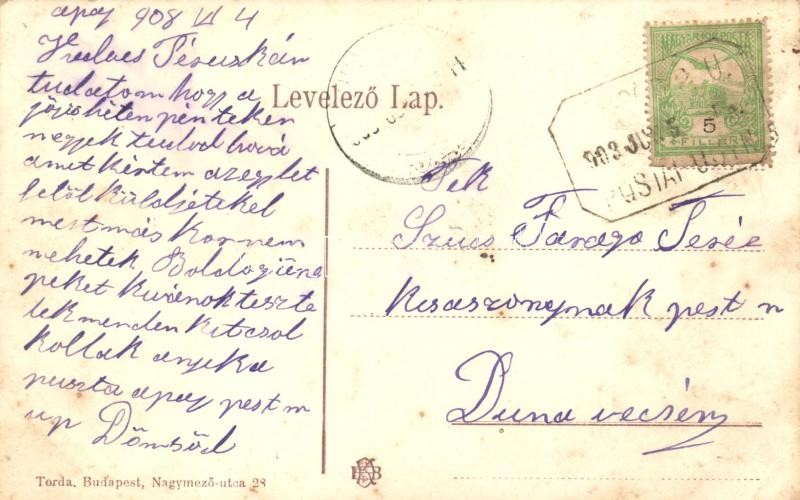 apaj 908 VI 4
Kedves Teruskám
tudatom hogy a
jövő héten pénteken
megyek tudod hová
amit kértem azegylet
felől küldjétekel
mert más kor nem
mehetek Boldog üne
peket kivánok teszte
lek menden kit csol
kollak anyika
puszta apaj pest m
up Dömsöd
Levelező Lap.
MAGYAR KIR. POSTA
5
FILLÉR
903 JUN 5
PUSTAPUSZTA
Tek
Szücs Farago Teréz
kisaszonynak pest m
Duna vecsén
Torda, Budapest, Nagymező-utca 28